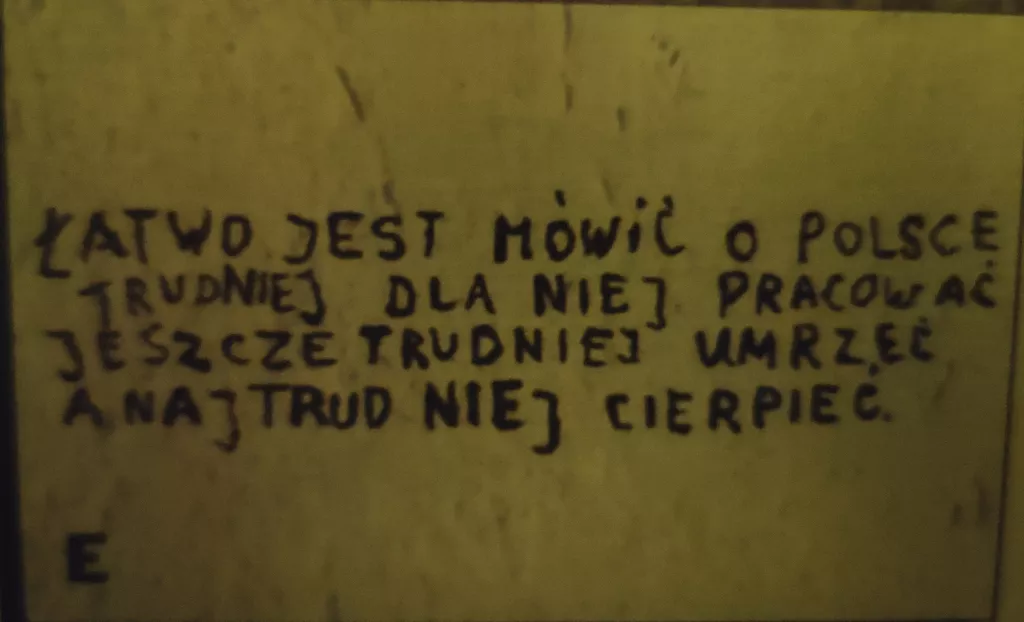 ŁATWO JEST MÓWIĆ O POLSCE
TRUDNIEJ DLA NIEJ PRACOWAĆ
JESZCZE TRUDNIEJ UMRZEĆ
A NAJTRUDNIEJ CIERPIEĆ.
E